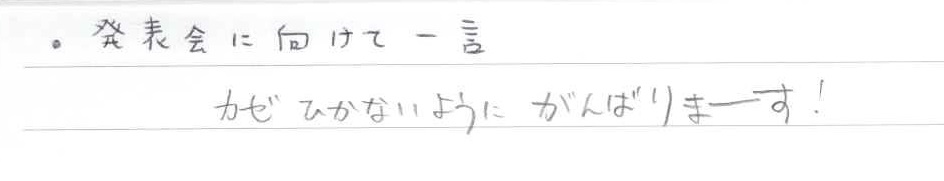 ・発表会に向けて一言
カゼひかないようにがんばりまーす!